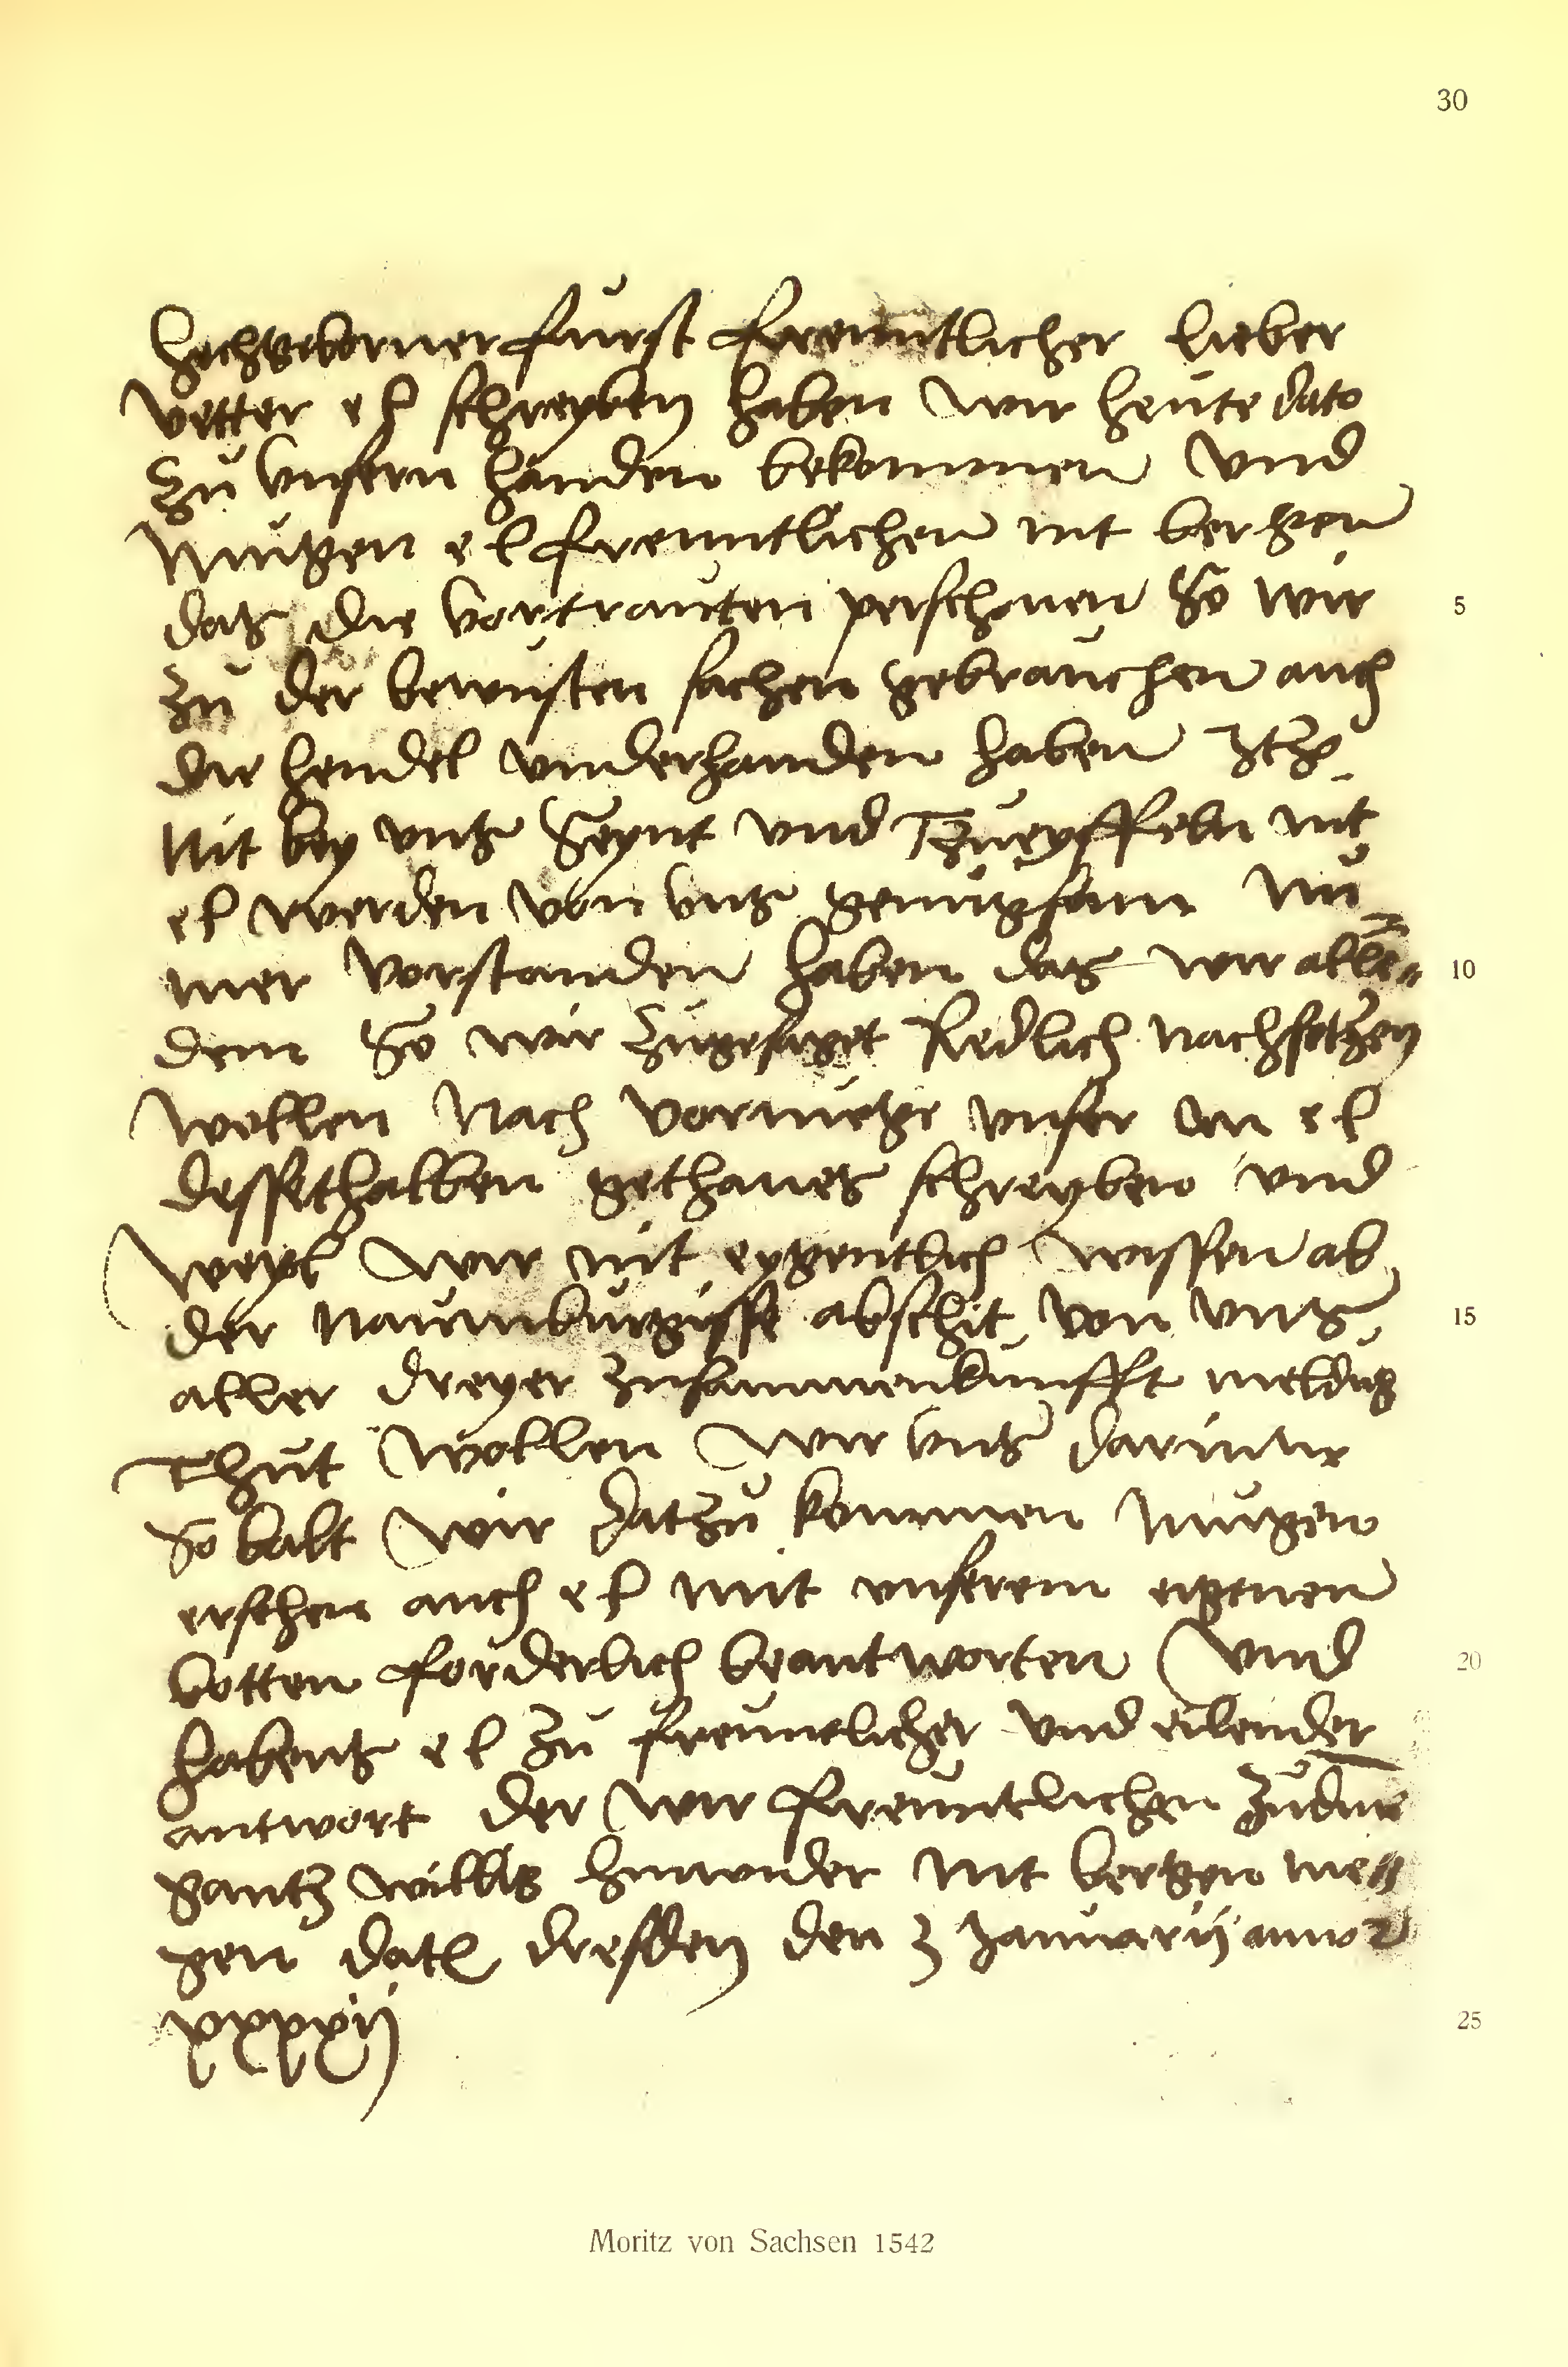 30
Hochgeborner furst freuntlicher lieber
vetter e l schreyben haben wir heute dato
zu unsern handen bekommen und
mugen e l freuntlichen nit bergen
das die vortrauten perschonen so wir
5
zu der bewusten sachen gebrauchen auch
die hendel underhanden haben itz
nit bey uns seynt und zweyffeln nit
e l werden von uns genugsam nu
mer vorstanden haben das wir alle
10
dem so wir zugesaget redlich nachsetzen
wollen nach vormuge unser an e l
dessethalben gethanes schreyben und
weyl wir nit eygentlich wissen ab
der naumburgisse abschit von uns
15
aller dreyer zusammenkunfft meldug
thut wollen wir uns darinne
so balt wir datzu kommen mugen
ersehen auch e l mit unserem eigenen
botten forderlich beantworten und
20
habens e l zu freuntlicher und eilender
antwort der wir freuntlichen
gantz willig hinwider nit bergen
gen dat dresden den 3 Januarii anno
xxxxii
25
Moritz von Sachsen 1542